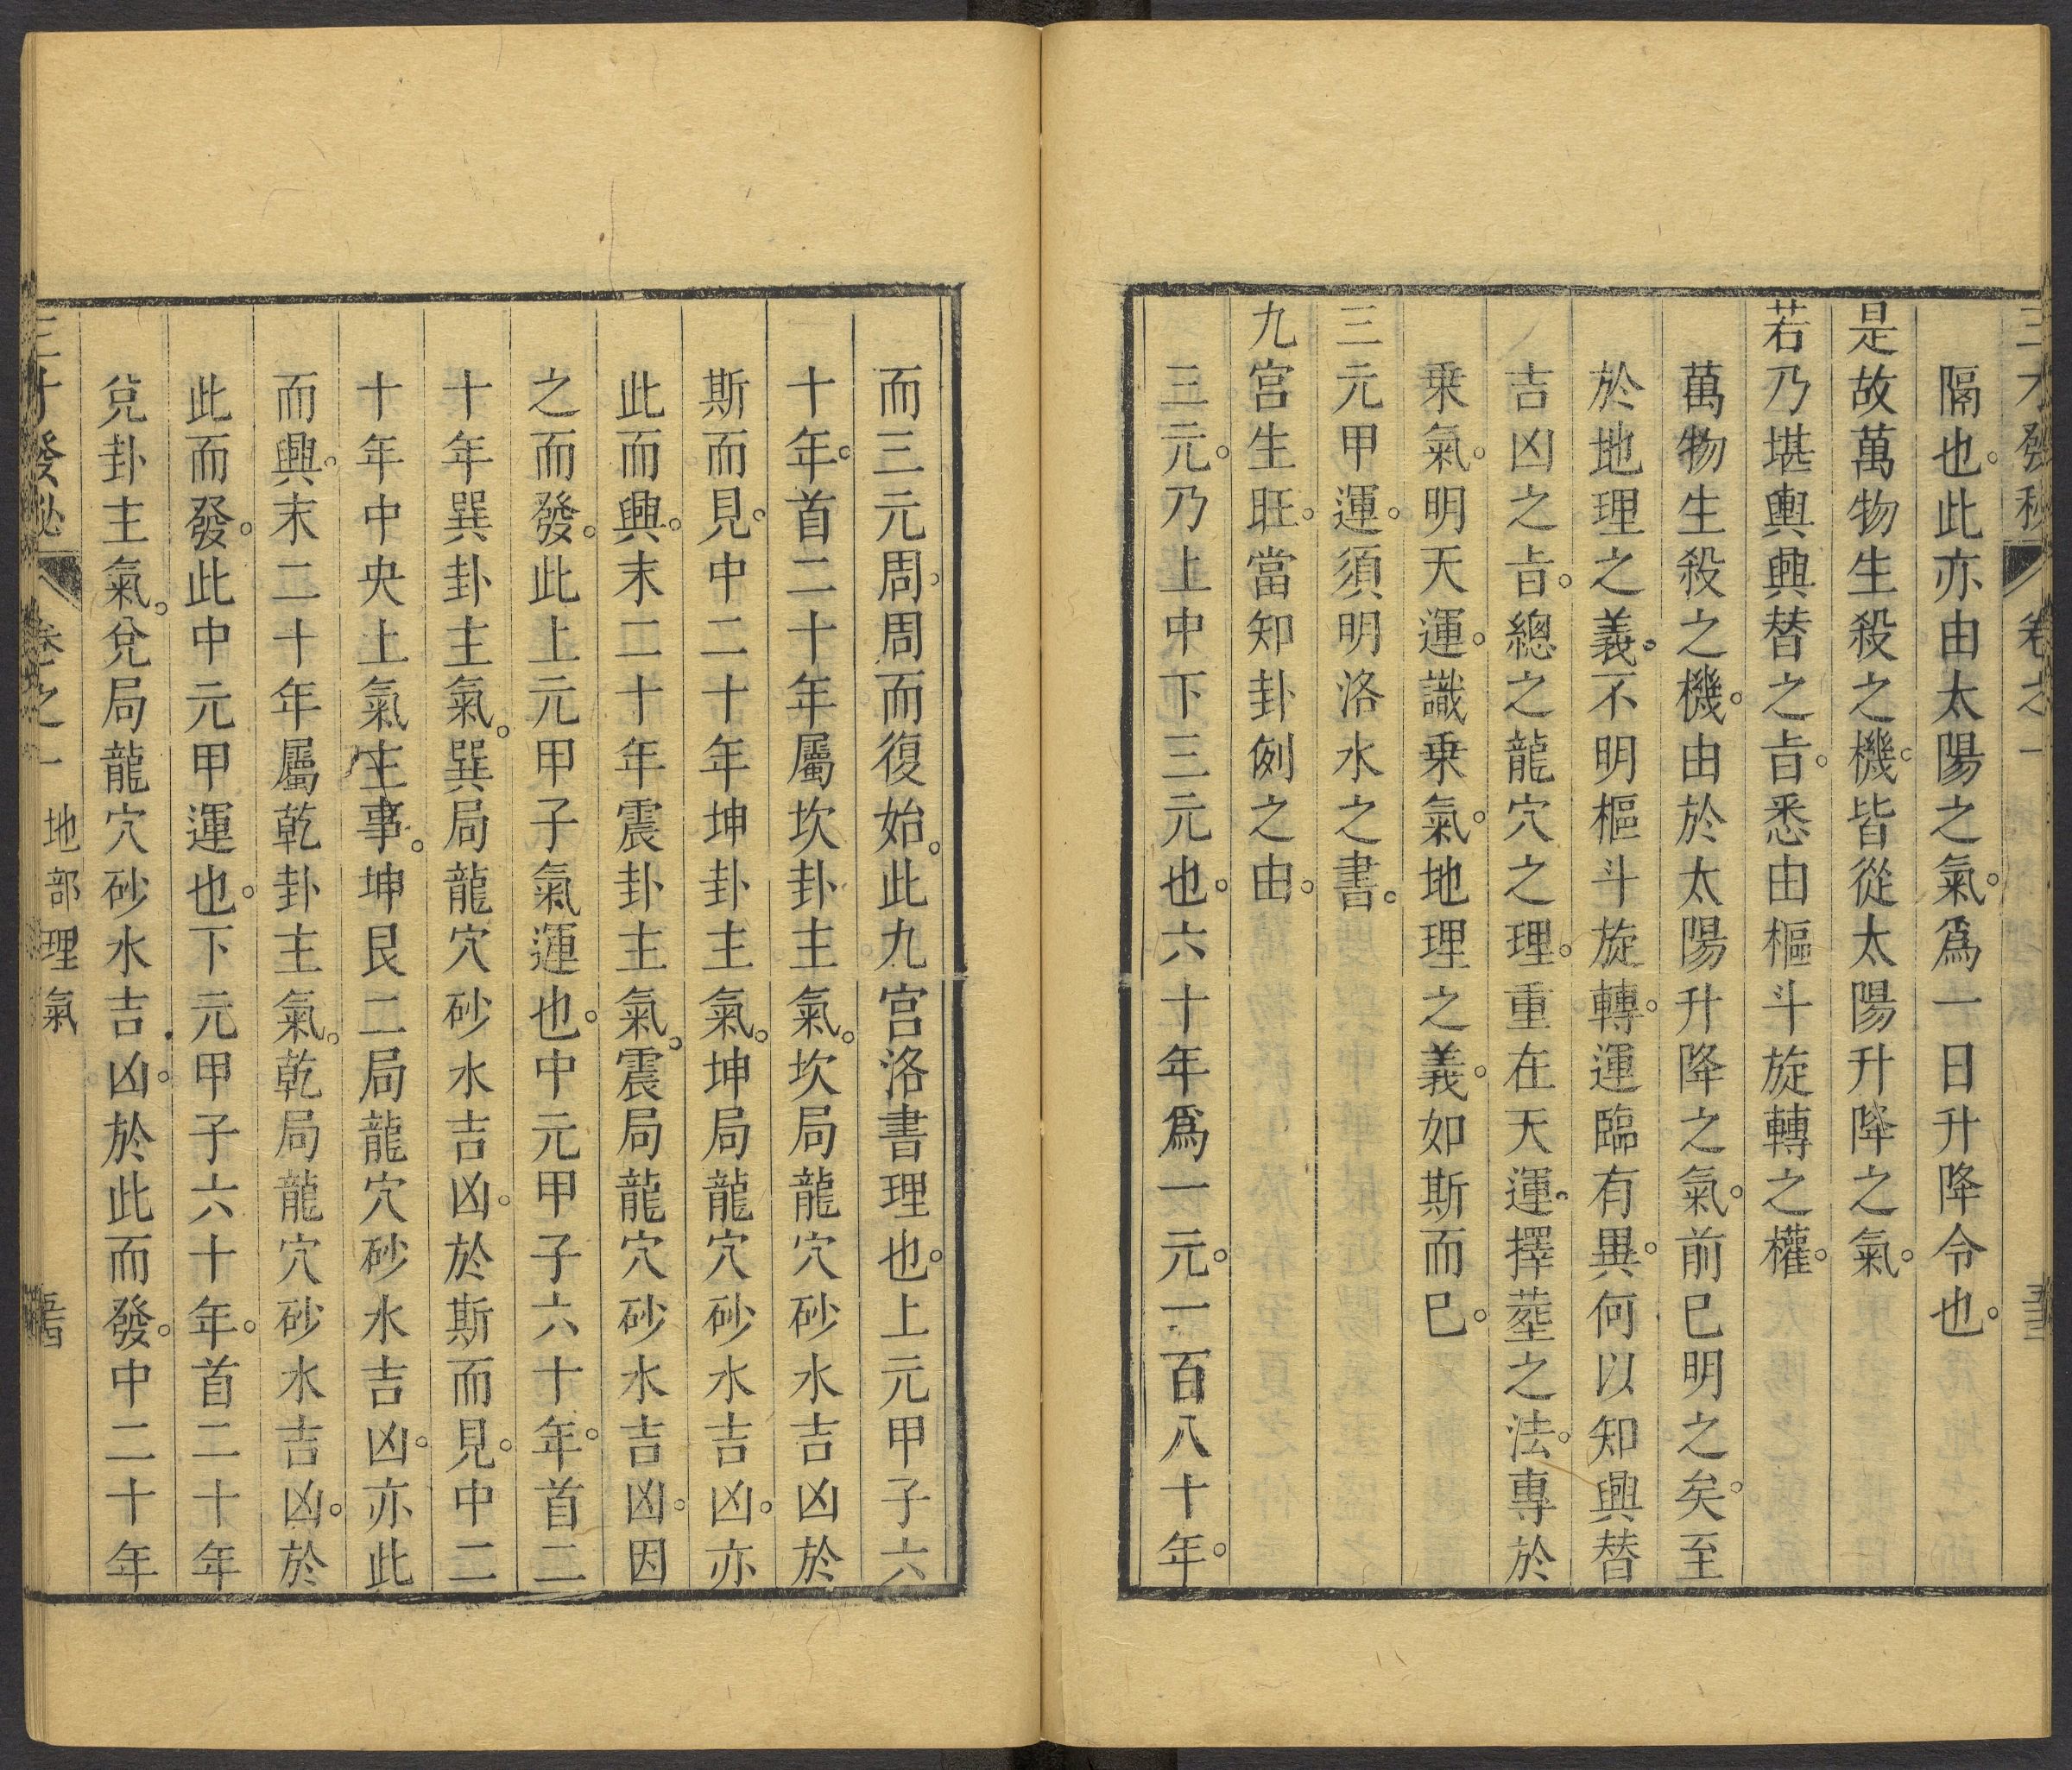 三才發秘 卷之一
隔也。此亦由太陽之氣。爲一日升降令也。
是故萬物生殺之機。皆從太陽升降之氣。
若乃堪輿興替之㫖。悉由樞斗旋轉之權。
萬物生殺之機。由於太陽升降之氣。前已明之矣。至
於地理之義。不明樞斗旋轉。運臨有異。何以知興替
吉凶之㫖。總之龍穴之理。重在天運。擇塟之法。專於
乗氣。明天運。識乗氣。地理之義。如斯而已。
三元甲運。須明洛水之書。
九宫生旺。當知卦例之由。
三元。乃上中下三元也。六十年爲一元。一百八十年。
而三元周。周而復始。此九宫洛書理也。上元甲子六
十年。首二十年屬坎卦主氣。坎局龍穴砂水吉凶於
斯而見。中二十年坤卦主氣。坤局龍穴砂水吉凶。亦
此而興。末二十年震卦主氣。震局龍穴砂水吉凶。因
之而發。此上元甲子氣運也。中元甲子六十年。首二
十年巽卦主氣。巽局龍穴砂水吉凶。於斯而見。中二
十年中央土氣主事。坤艮二局龍穴砂水吉凶。亦此
而興。末二十年屬乾卦主氣。乾局龍穴砂水吉凶。於
此而發。此中元甲運也。下元甲子六十年。首二十年
兌卦主氣。兌局龍穴砂水吉凶。於此而發。中二十年
三才發秘 卷之一 地部理氣